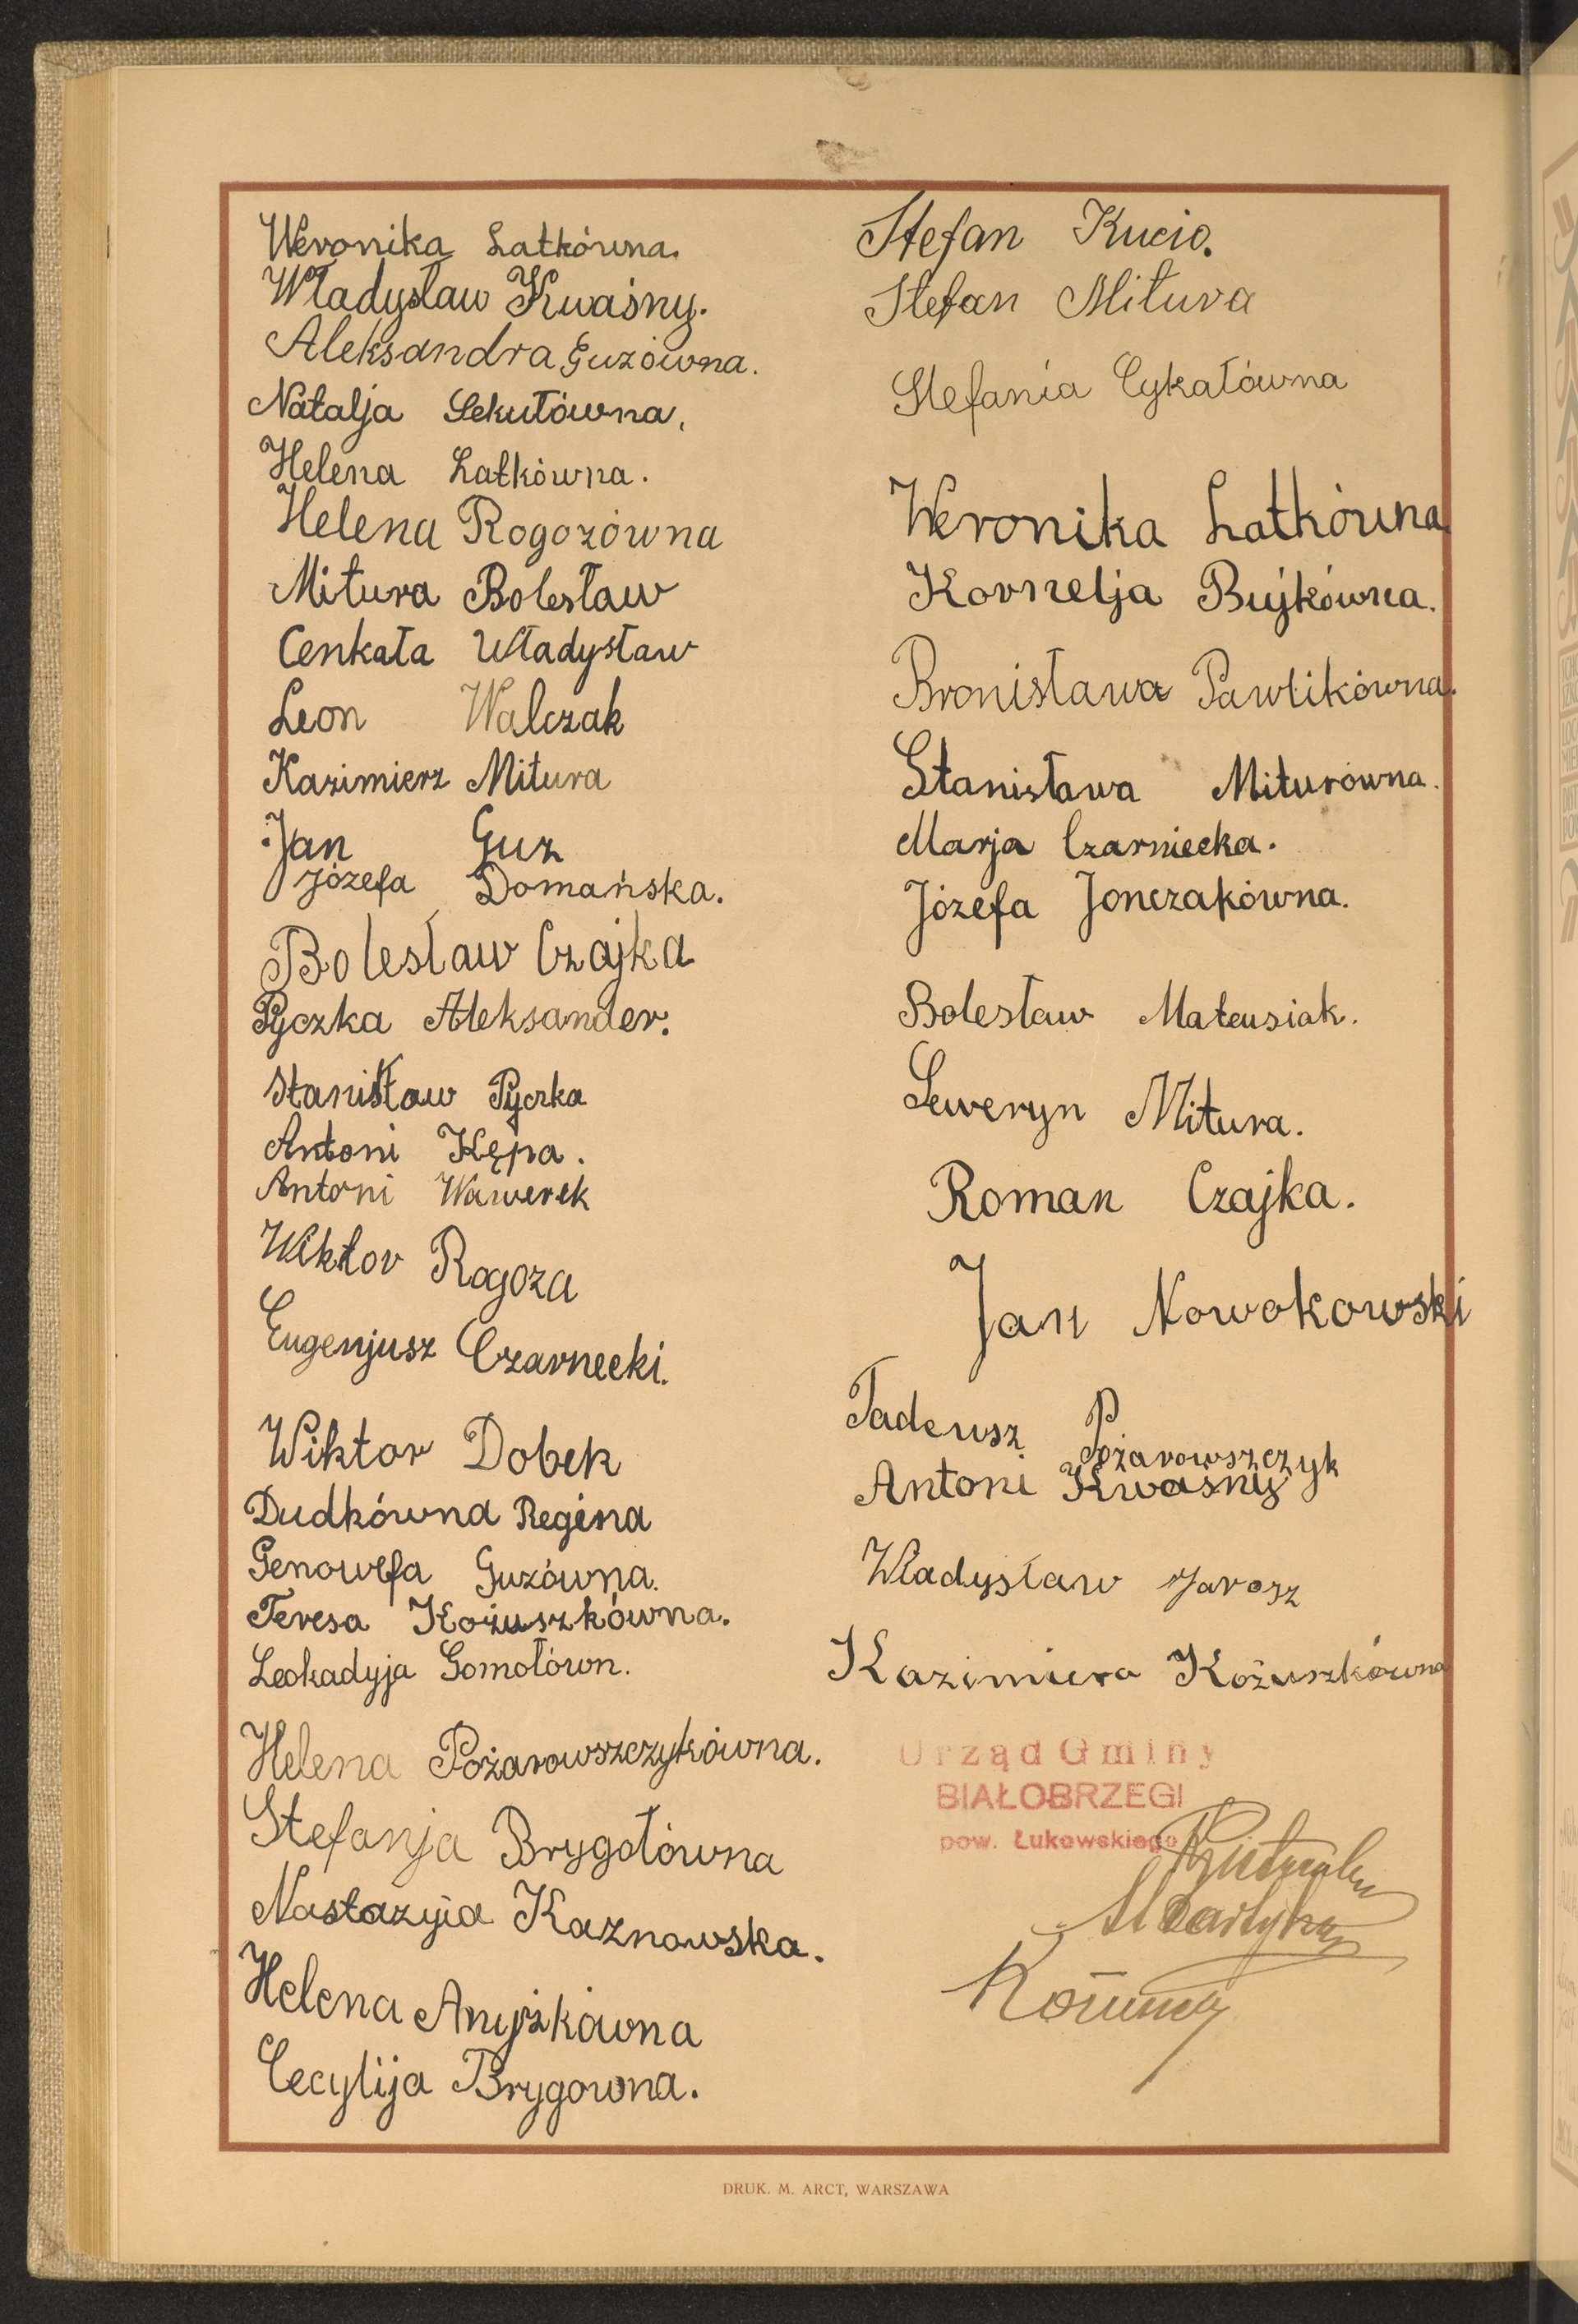 Weronika Latkówna.
Władysław Kwaśny.
Aleksandra Guzówna.
Natalja Sekułówna,
Helena Latkówna.
Helena Rogozówna
Mitura Bolesław
Cenkała Władysław
Leon Walczak
Kazimierz Mitura
Jan Guz
Józefa Domańska.
Bolesław Czajka
Pyczka Aleksander.
Stanisław Pyczka
Antoni Kępa.
Antoni Wawerek
Wiktor Rogoza
Eugenjusz Czarnecki.
Wiktor Dobek
Dudkówna Regina
Genowefa Guzówna.
Teresa Kożuszkówna.
Leokadyja Gomołówn.
Helena Pożarowszczykówna.
Stefanja Brygołówna
Nastazyja Kaznowska.
Helena Anyżkówna
Cecylija Brygowna.
Stefan Kucio.
Stefan Mitura
Stefania Cykałówna
Weronika Latkówna
Kornelja Bujkówna.
Bronisława Pawlikówna.
Stanisława Miturówna.
Marja Czarniecka.
Józefa Jonczakówna.
Bolesław Mateusiak.
Seweryn Mitura.
Roman Czajka.
Jan Nowokowski
Tadeusz Pożarowszczyk
Antoni Kwaśny
Władysław Jarosz
Kazimiera Kożuszkówna
Urząd Gminy
BIAŁOBRZEGI
pow. Łukowskiego
DRUK. M. ARCT, WARSZAWA